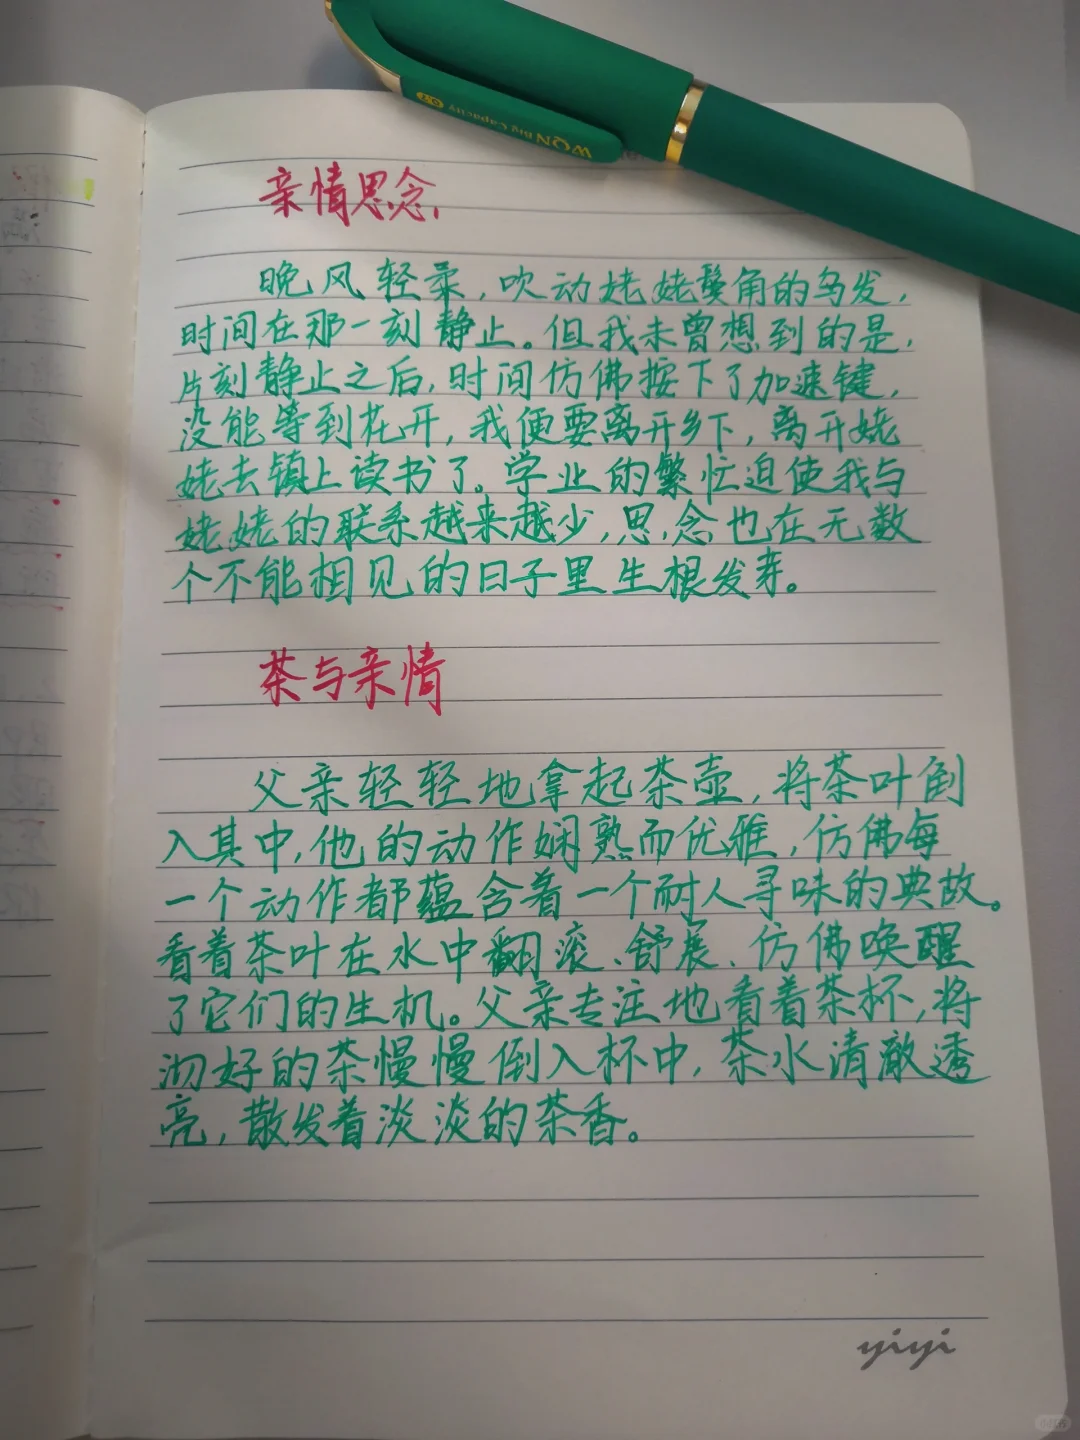 WQN Big Capacity
亲情思念
晚风轻柔，吹动姥姥鬓角的乌发，
时间在那一刻静止。但我未曾想到的是，
片刻静止之后，时间仿佛按下了加速键，
没能等到花开，我便要离开乡下，离开姥
姥去镇上读书了。学业的繁忙迫使我与
姥姥的联系越来越少，思念也在无数
个不能相见的日子里生根发芽。
茶与亲情
父亲轻轻地拿起茶壶，将茶叶倒
入其中，他的动作娴熟而优雅，仿佛每
一个动作都蕴含着一个耐人寻味的典故。
看着茶叶在水中翻滚、舒展、仿佛唤醒
了它们的生机。父亲专注地看着茶杯，将
沏好的茶慢慢倒入杯中，茶水清澈透
亮，散发着淡淡的茶香。
yiyi